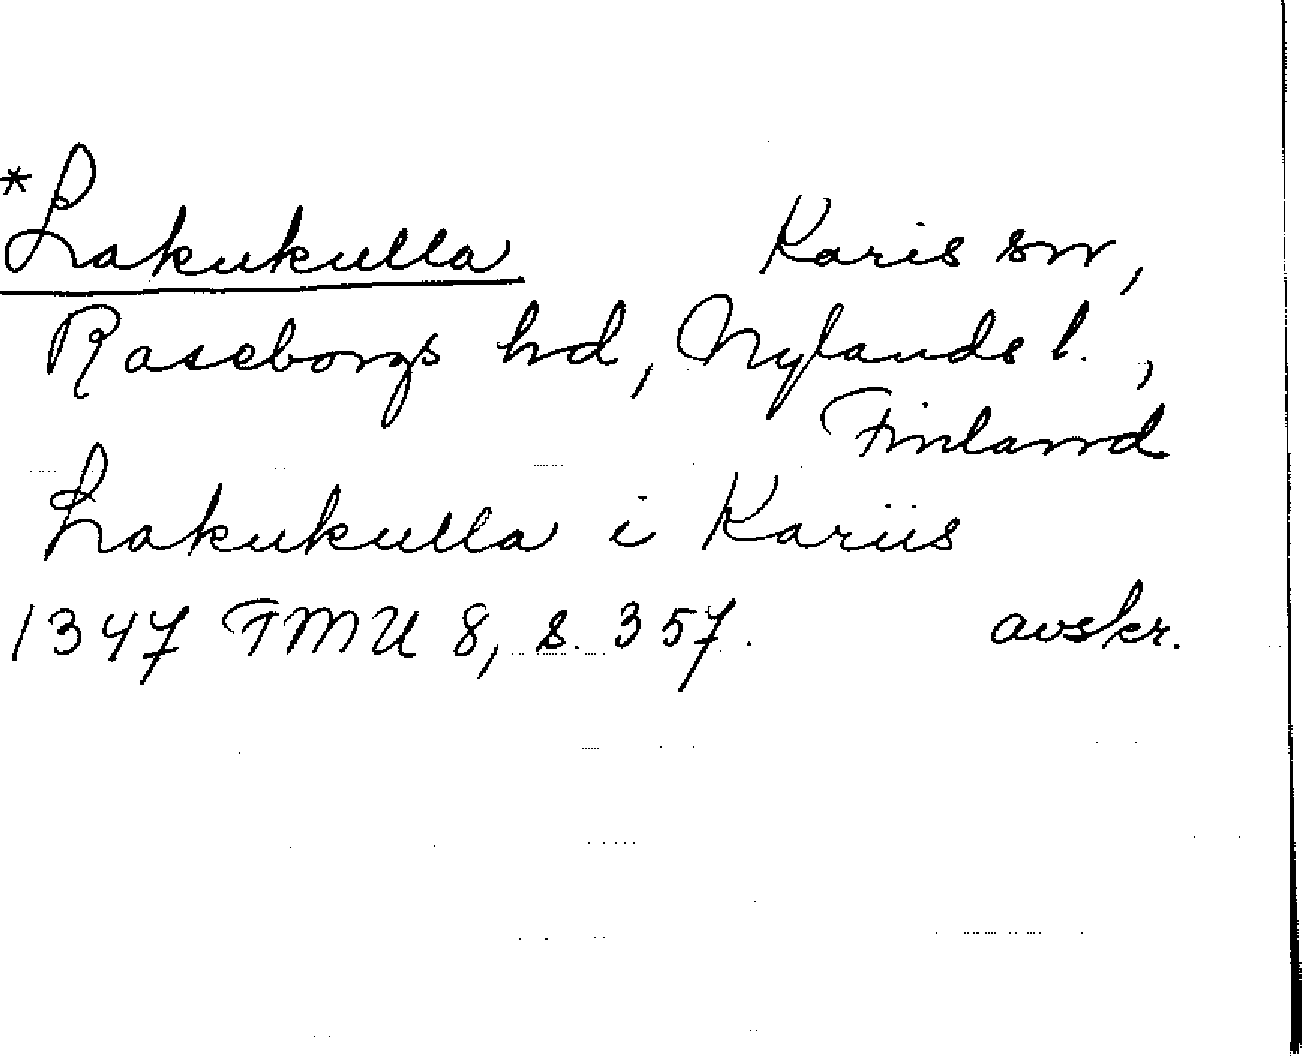 *Lakukulla Karis sn,
Raseborgs hd, Nylands l.,
Finland
Lakukulla i Kariis
1347 FMU 8, s. 357. avskr.